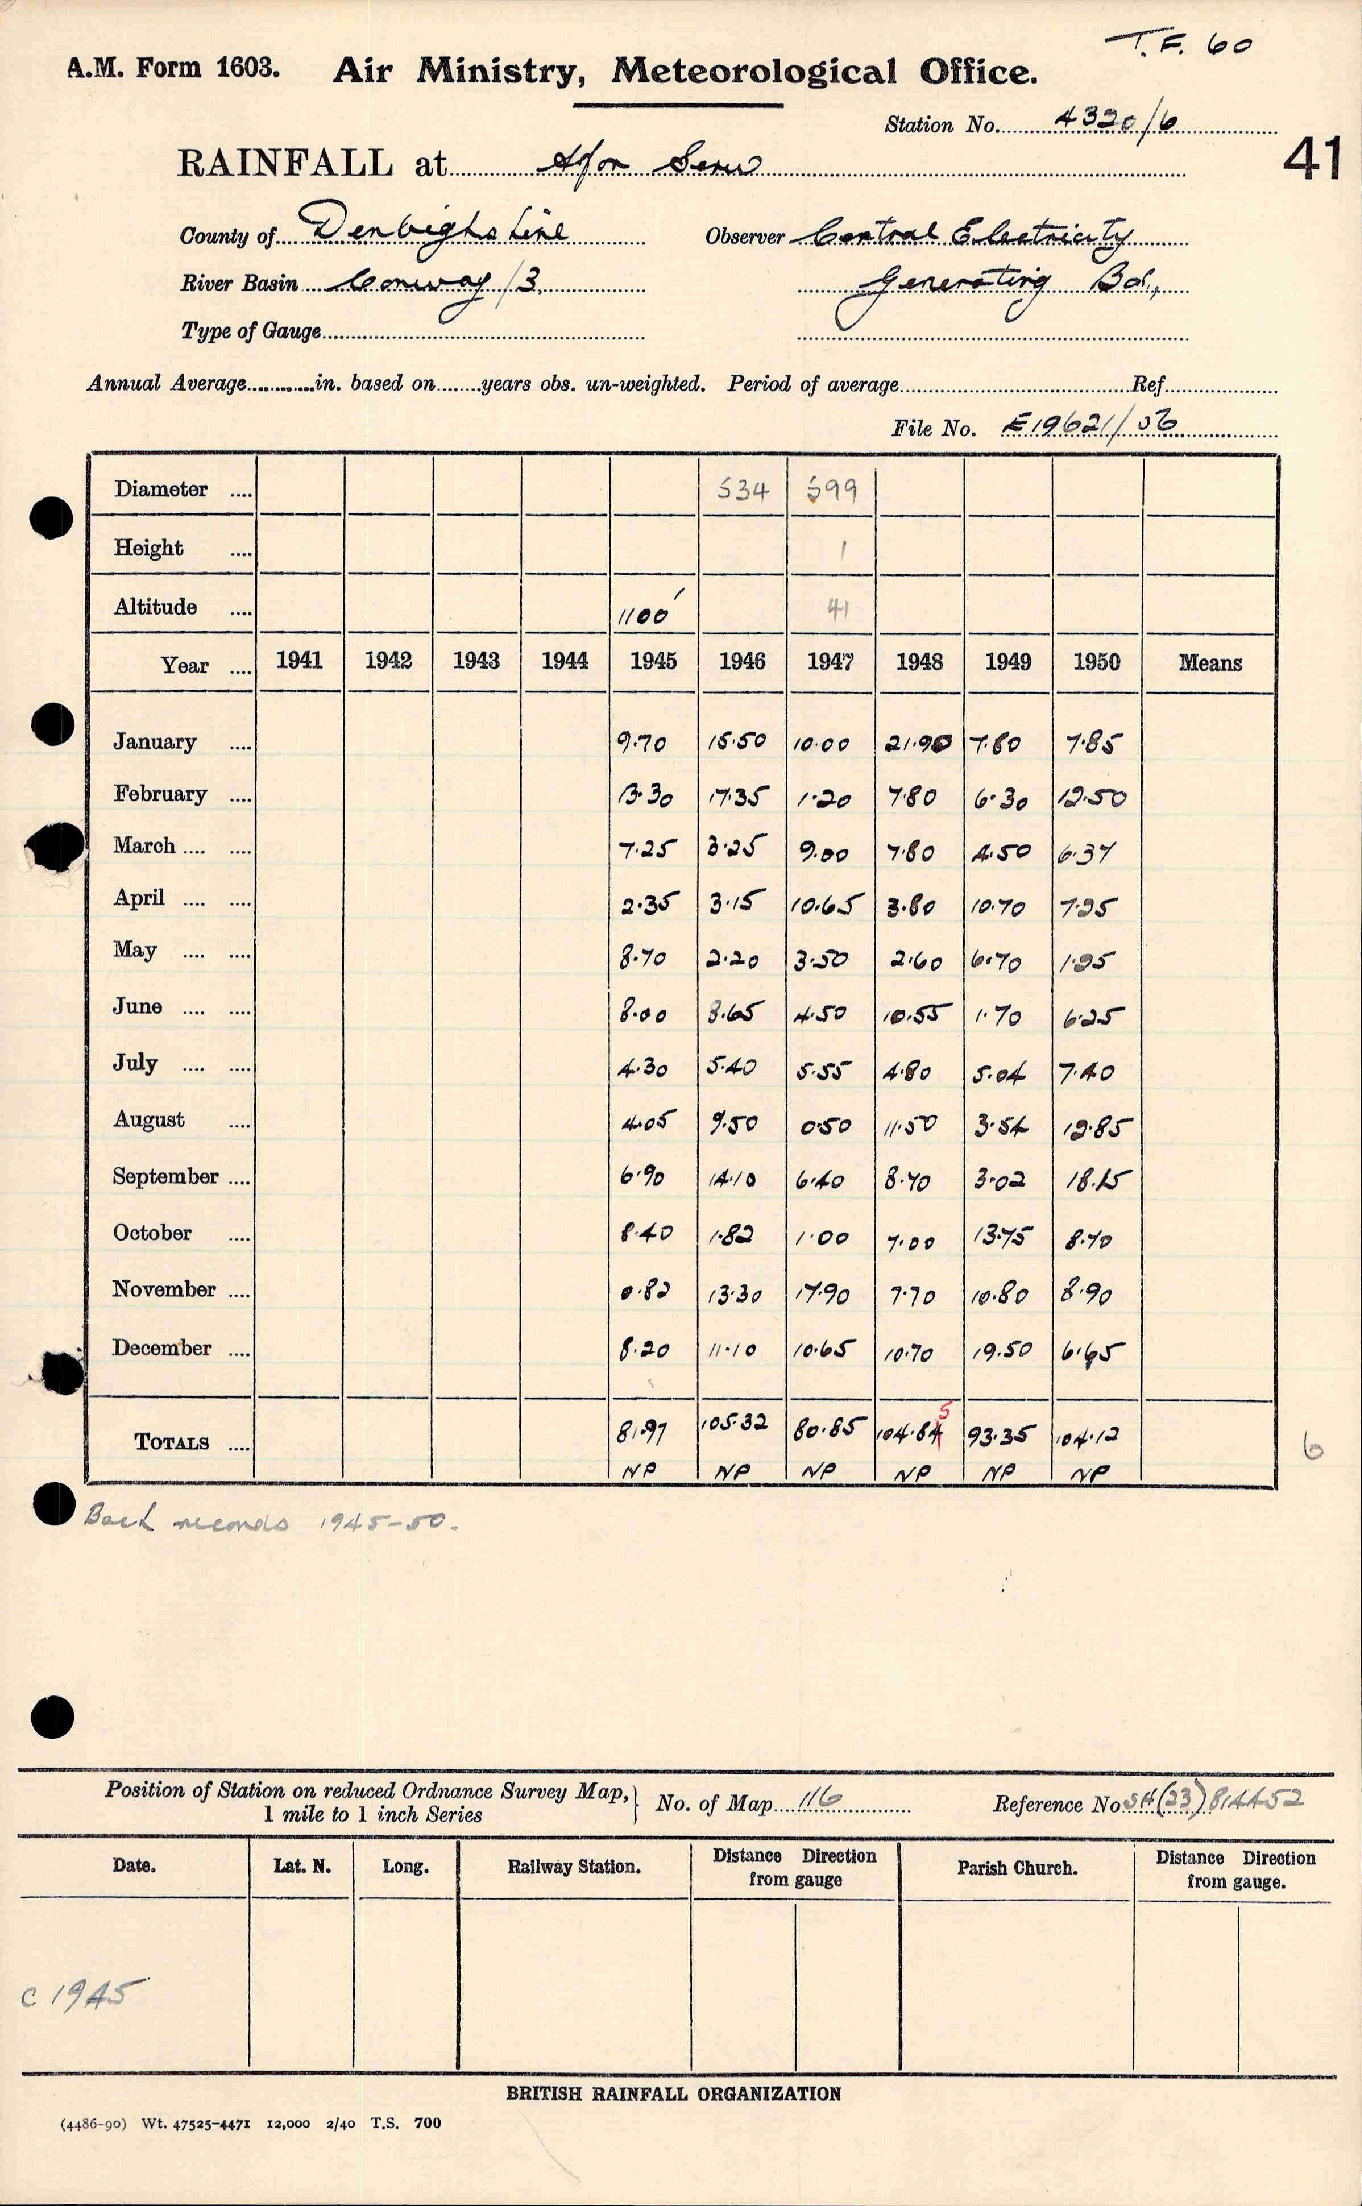 T.F. 60
A.M. Form 1603. Air Ministry, Meteorological Office.
Station No. 4320/6
41
RAINFALL at Afon Serw
County of Denbighshire Observer Central Electricity
River Basin Conway /3. Generating Bd.,
Type of Gauge
Annual Average in. based on years obs. un-weighted. Period of average Ref
File No. E19621/56
Diameter .... 534 599
Height .... 1
Altitude .... 1100' 41
Year .... 1941 1942 1943 1944 1945 1946 1947 1948 1949 1950 Means
January .... 9.70 15.50 10.00 21.90 7.80 7.85
February .... 13.30 17.35 1.20 7.80 6.30 12.50
March .... .... 7.25 3.25 9.00 7.80 4.50 6.37
April .... .... 2.35 3.15 10.65 3.80 10.70 7.25
May .... .... 8.70 2.20 3.50 2.60 6.70 1.25
June .... .... 8.00 8.65 4.50 10.55 1.70 6.25
July .... .... 4.30 5.40 5.55 4.80 5.04 7.40
August .... 4.05 9.50 0.50 11.50 3.54 12.85
September .... 6.90 14.10 6.40 8.70 3.02 18.15
October .... 8.40 1.82 1.00 7.00 13.75 8.70
November .... 0.82 13.30 17.90 7.70 10.80 8.90
December .... 8.20 11.10 10.65 10.70 19.50 6.65
TOTALS .... 81.97 105.32 80.85 104.84 5 93.35 104.12
NP NP NP NP NP NP
6
Back records 1945-50.
Position of Station on reduced Ordnance Survey Map,
1 mile to 1 inch Series
No. of Map 116 Reference No SH(23)814452
Date. Lat. N. Long. Railway Station. Distance from gauge Direction Parish Church. Distance from gauge. Direction
c 1945
BRITISH RAINFALL ORGANIZATION
(4486-90) Wt. 47525-4471 12,000 2/40 T.S. 700